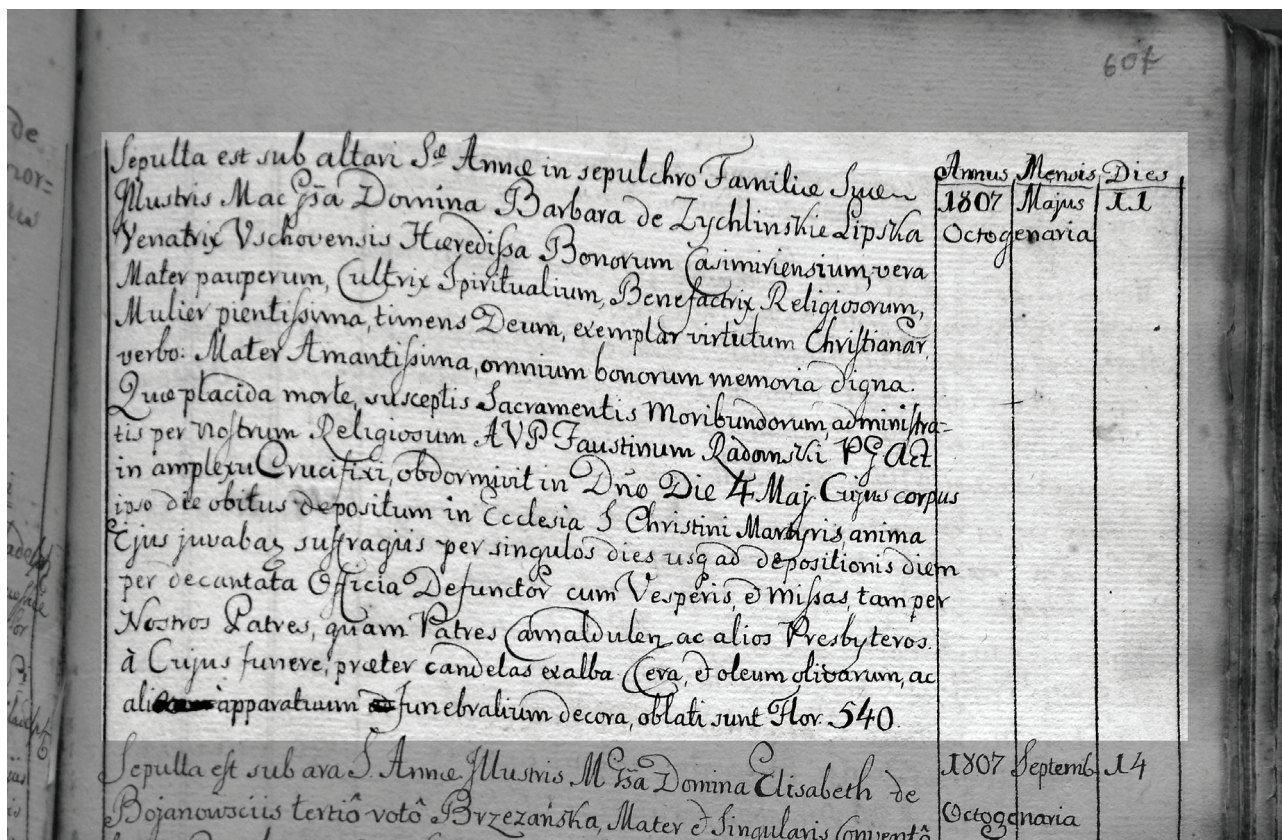 607
Annus Mensis Dies
Sepulta est sub altari S๏ Annæ in sepulchro Familiæ Suæ
1807 Majus 11
Illustris Mac Gsa Domina Barbara de Zychlinskie Lipska
Octogenaria
Venatrix Vschovensis Hæredissa Bonorum Casimiriensium, vera
Mater pauperum, Cultrix Spiritualium, Benefactrix Religiosorum,
Mulier pientissima, timens Deum, exemplar virtutum Christianar,
verbo: Mater Amantissima, omnium bonorum memoria digna.
Quæ placida morte, susceptis Sacramentis Moribundorum, administra=
tis per Nostrum Religiosum AVP Faustinum Radomski PG Act
in amplexu Crucifixi, obdormivit in Dño Die 4 Maj. Cujus corpus
ipso die obitus depositum in Ecclesia S Christini Martyris, anima
Ejus juvabaz suffragiis per singulos dies usq ad depositionis diem
per decantata Officia Defunctor cum Vesperis, & Missas, tam per
Nostros Patres, quam Patres Camaldulen ac alios Presbyteros.
à Cujus funere, præter candelas ex alba Cera, & oleum olivarum, ac
apparatuum funebralium decora, oblati sunt Flor. 540.
Sepulta est sub ara S. Annæ Illustris M Gsa Domina Elisabeth de
1807 Septemb. 14
Bojanowsciis tertiô votô Brzezańska, Mater & Singularis Conventô
Octogenaria